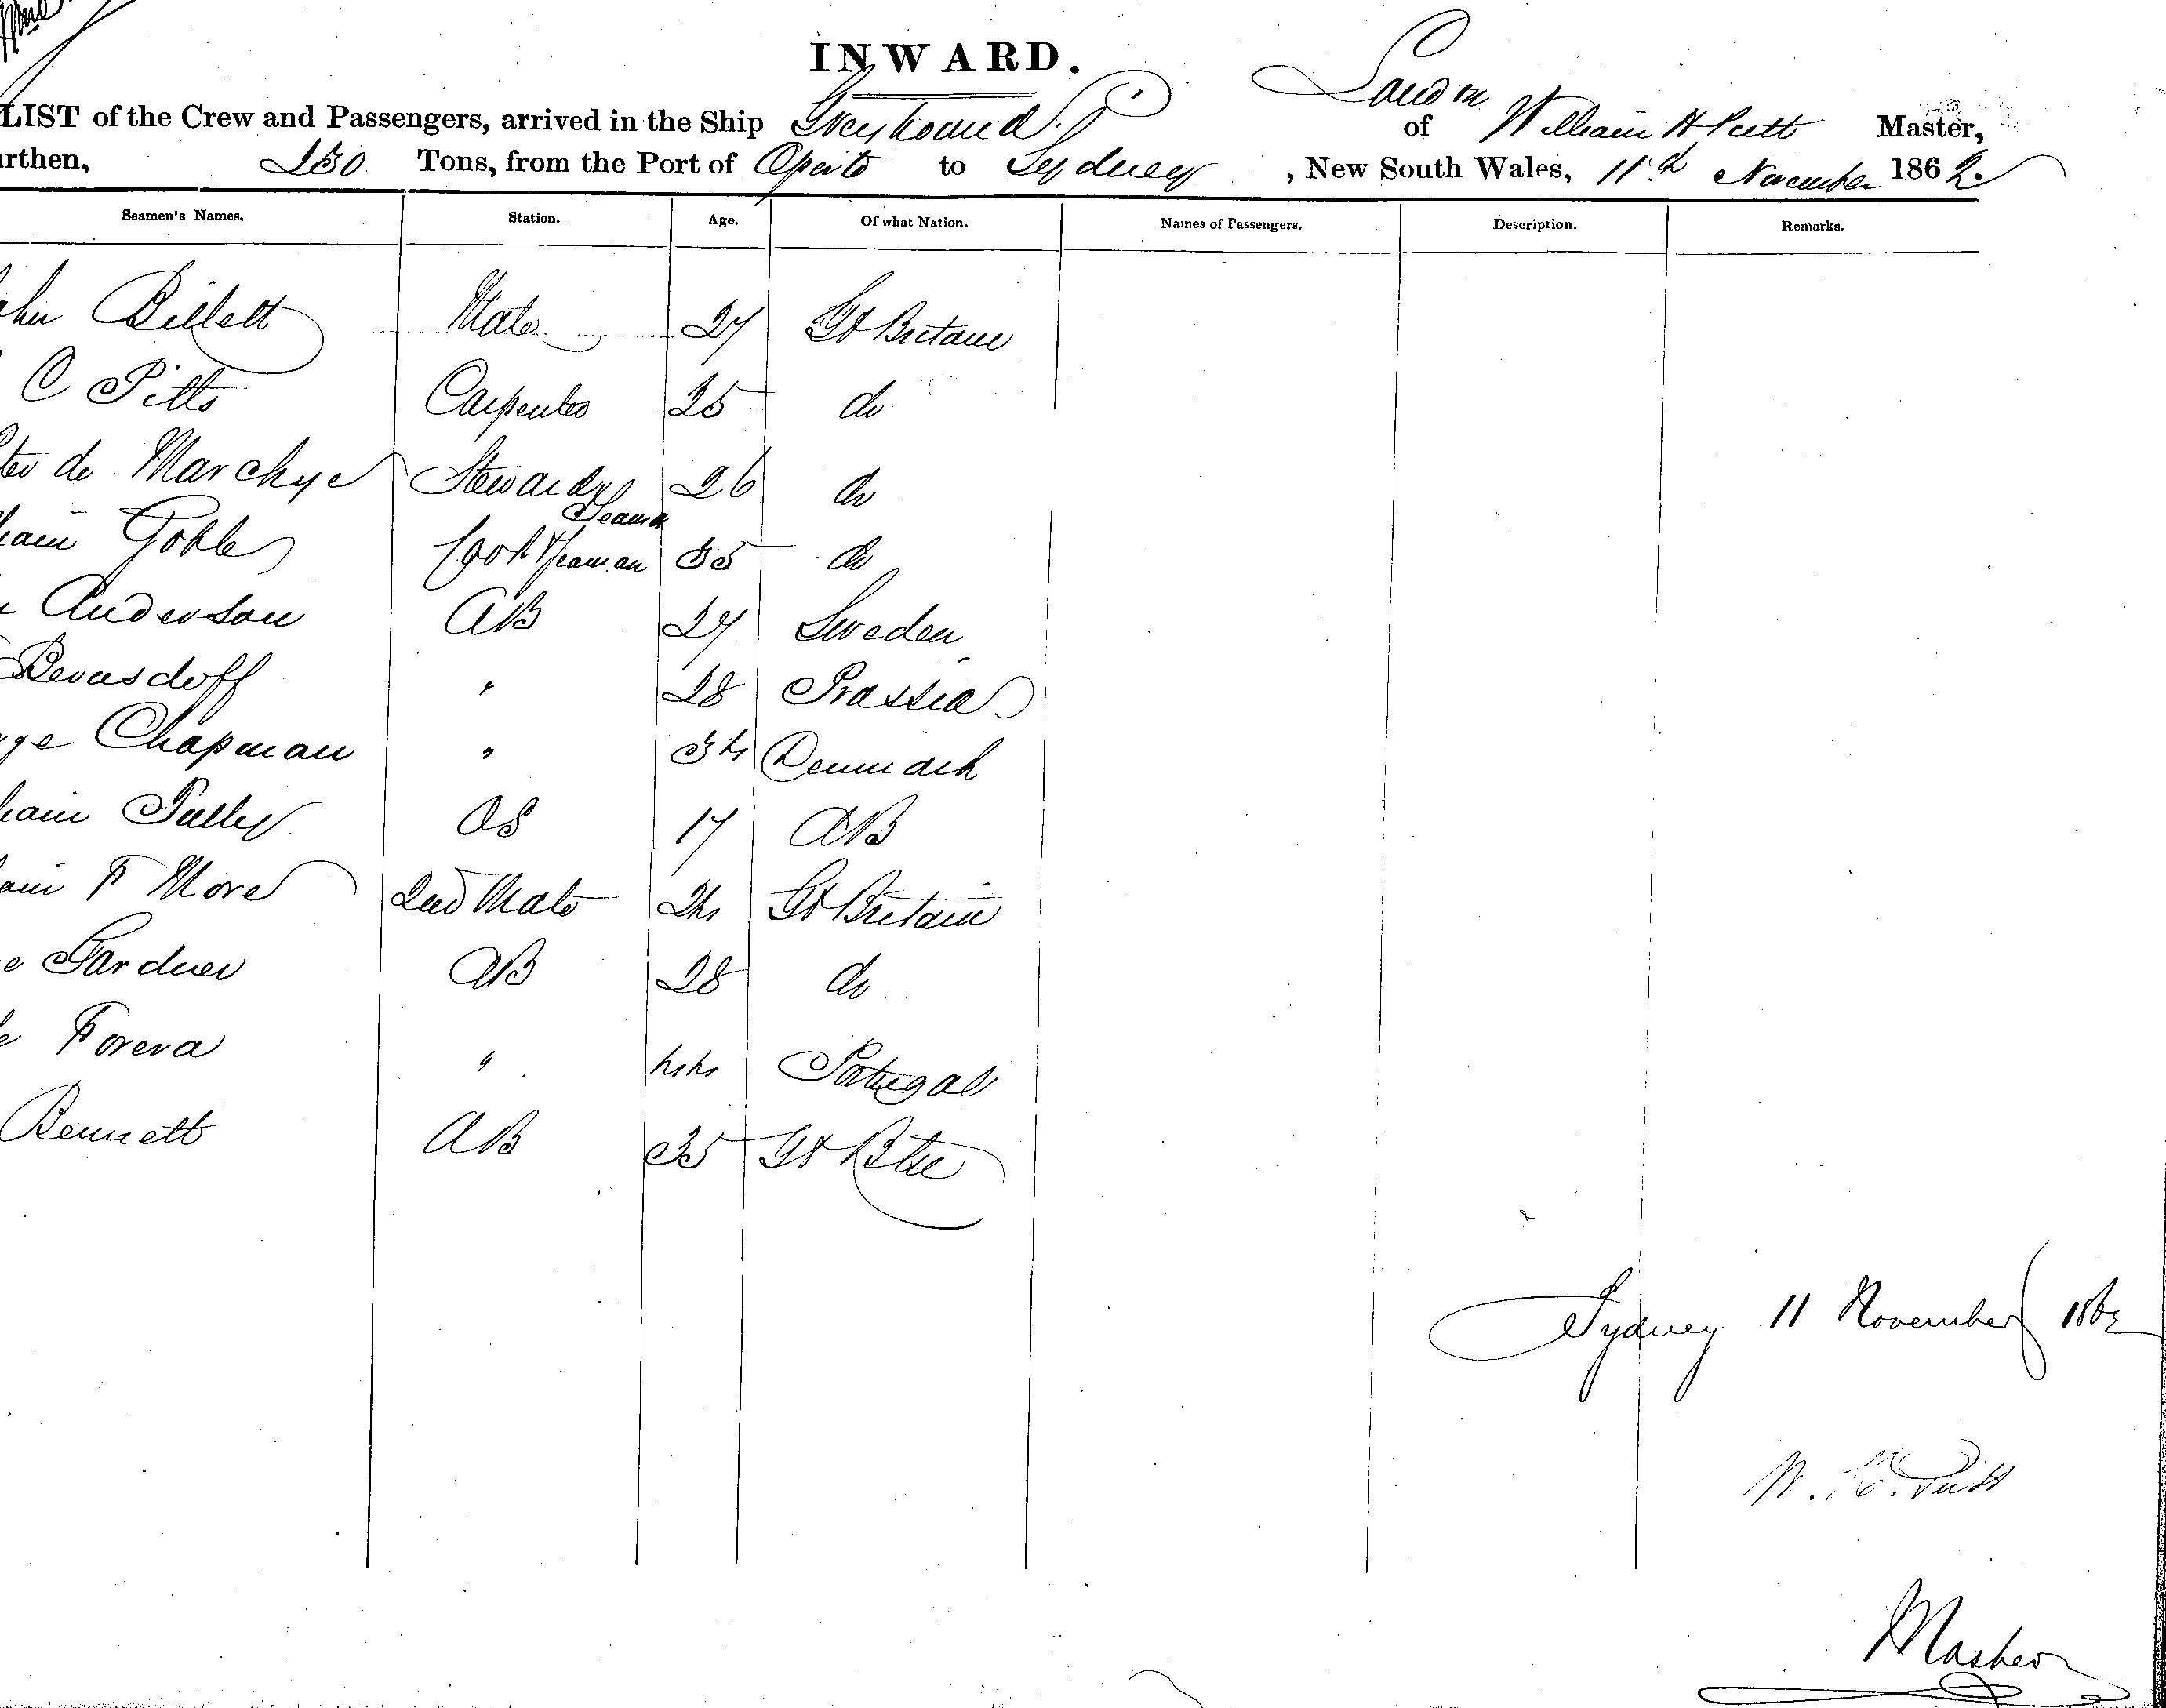 INWARD.
London
LIST of the Crew and Passengers, arrived in the Ship Greyhound of William H Pitt Master,
rthen, 250 Tons, from the Port of Oporto to Sydney, New South Wales, 11th November 1862.
Seamen's Names. Station. Age. Of what Nation. Names of Passengers. Description. Remarks.
ohn Billett Mate 27 Gt Britane
C Pitts Carpenter 25 do
ter de Marchye Steward & Seaman 26 do
liam Goble Cook & Seaman 35 do
Anderson AB 27 Sweden
" 28 Prassia
rge Chapman " 34 Denmark
liam Pulley OS 17 AB
iam F More 2nd Mate 24 Gt Britain
e Gardner AB 28 do
Forera " 44 Portugal
Bennett AB 35 Gt
Sydney 11 November 1862
W. H. Pitt
Master